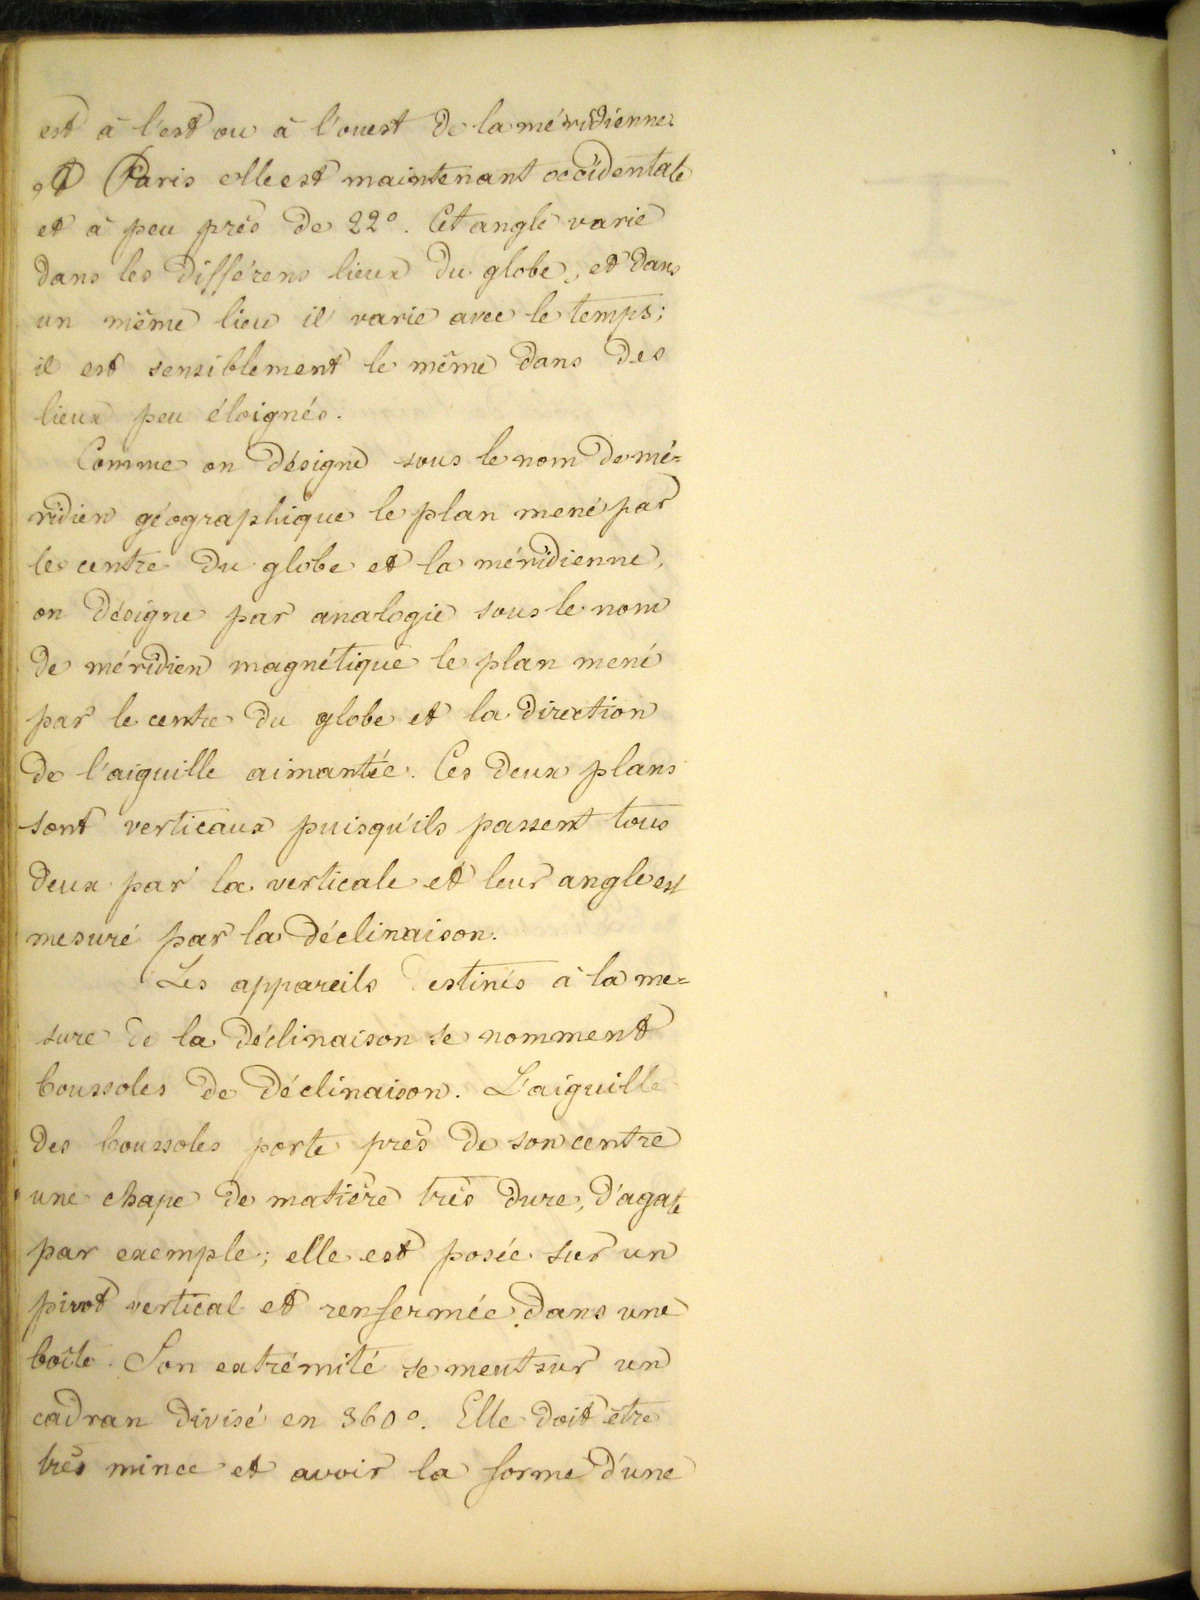 est à l'est ou à l'ouest de la méridienne.
A Paris elle est maintenant occidentale
et à peu près de 22°. Cet angle varie
dans les différens lieux du globe, et dans
un même lieu il varie avec le temps;
il est sensiblement le même dans des
lieux peu éloignés.
Comme on désigne sous le nom de mé=
ridien géographique le plan mené par
le centre du globe et la méridienne,
on désigne par analogie sous le nom
de méridien magnétique le plan mené
par le centre du globe et la direction
de l'aiguille aimantée. Ces deux plans
sont verticaux puisqu'ils passent tous
deux par la verticale et leur angle est
mesuré par la déclinaison.
Les appareils destinés à la me=
sure de la déclinaison se nomment
boussoles de déclinaison. L'aiguille
des boussoles porte près de son centre
une chape de matière très dure, d'agate
par exemple; elle est posée sur un
pivot vertical et renfermée dans une
boîte. Son extrémité se meut sur un
cadran divisé en 360°. Elle doit être
très mince et avoir la forme d'une